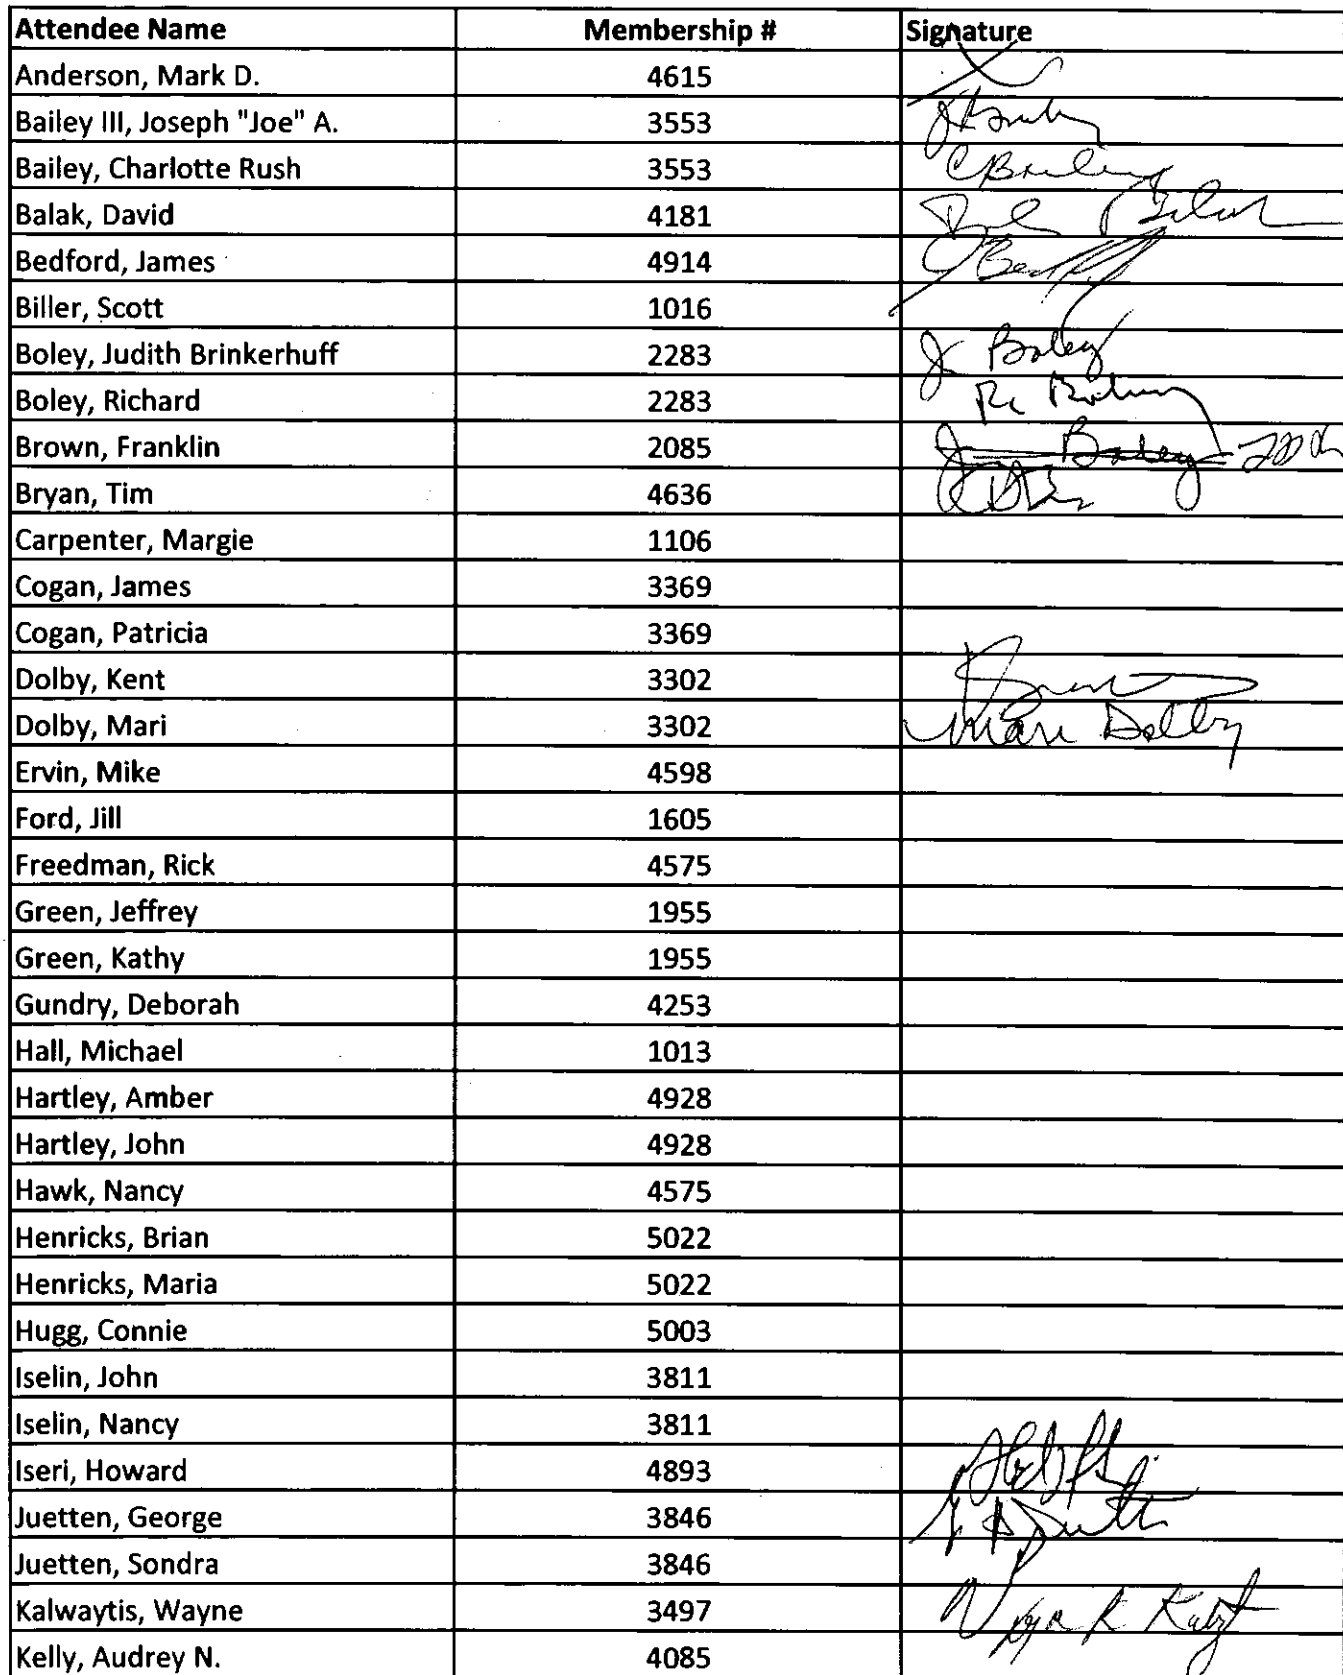 Attendee Name Membership # Signature
Anderson, Mark D. 4615
Bailey III, Joseph "Joe" A. 3553
Bailey, Charlotte Rush 3553 C Bailey
Balak, David 4181
Bedford, James 4914
Biller, Scott 1016
Boley, Judith Brinkerhuff 2283 J Boley
Boley, Richard 2283
Brown, Franklin 2085 Boley
Bryan, Tim 4636
Carpenter, Margie 1106
Cogan, James 3369
Cogan, Patricia 3369
Dolby, Kent 3302
Dolby, Mari 3302 Mari Dolby
Ervin, Mike 4598
Ford, Jill 1605
Freedman, Rick 4575
Green, Jeffrey 1955
Green, Kathy 1955
Gundry, Deborah 4253
Hall, Michael 1013
Hartley, Amber 4928
Hartley, John 4928
Hawk, Nancy 4575
Henricks, Brian 5022
Henricks, Maria 5022
Hugg, Connie 5003
Iselin, John 3811
Iselin, Nancy 3811
Iseri, Howard 4893
Juetten, George 3846
Juetten, Sondra 3846
Kalwaytis, Wayne 3497
Kelly, Audrey N. 4085